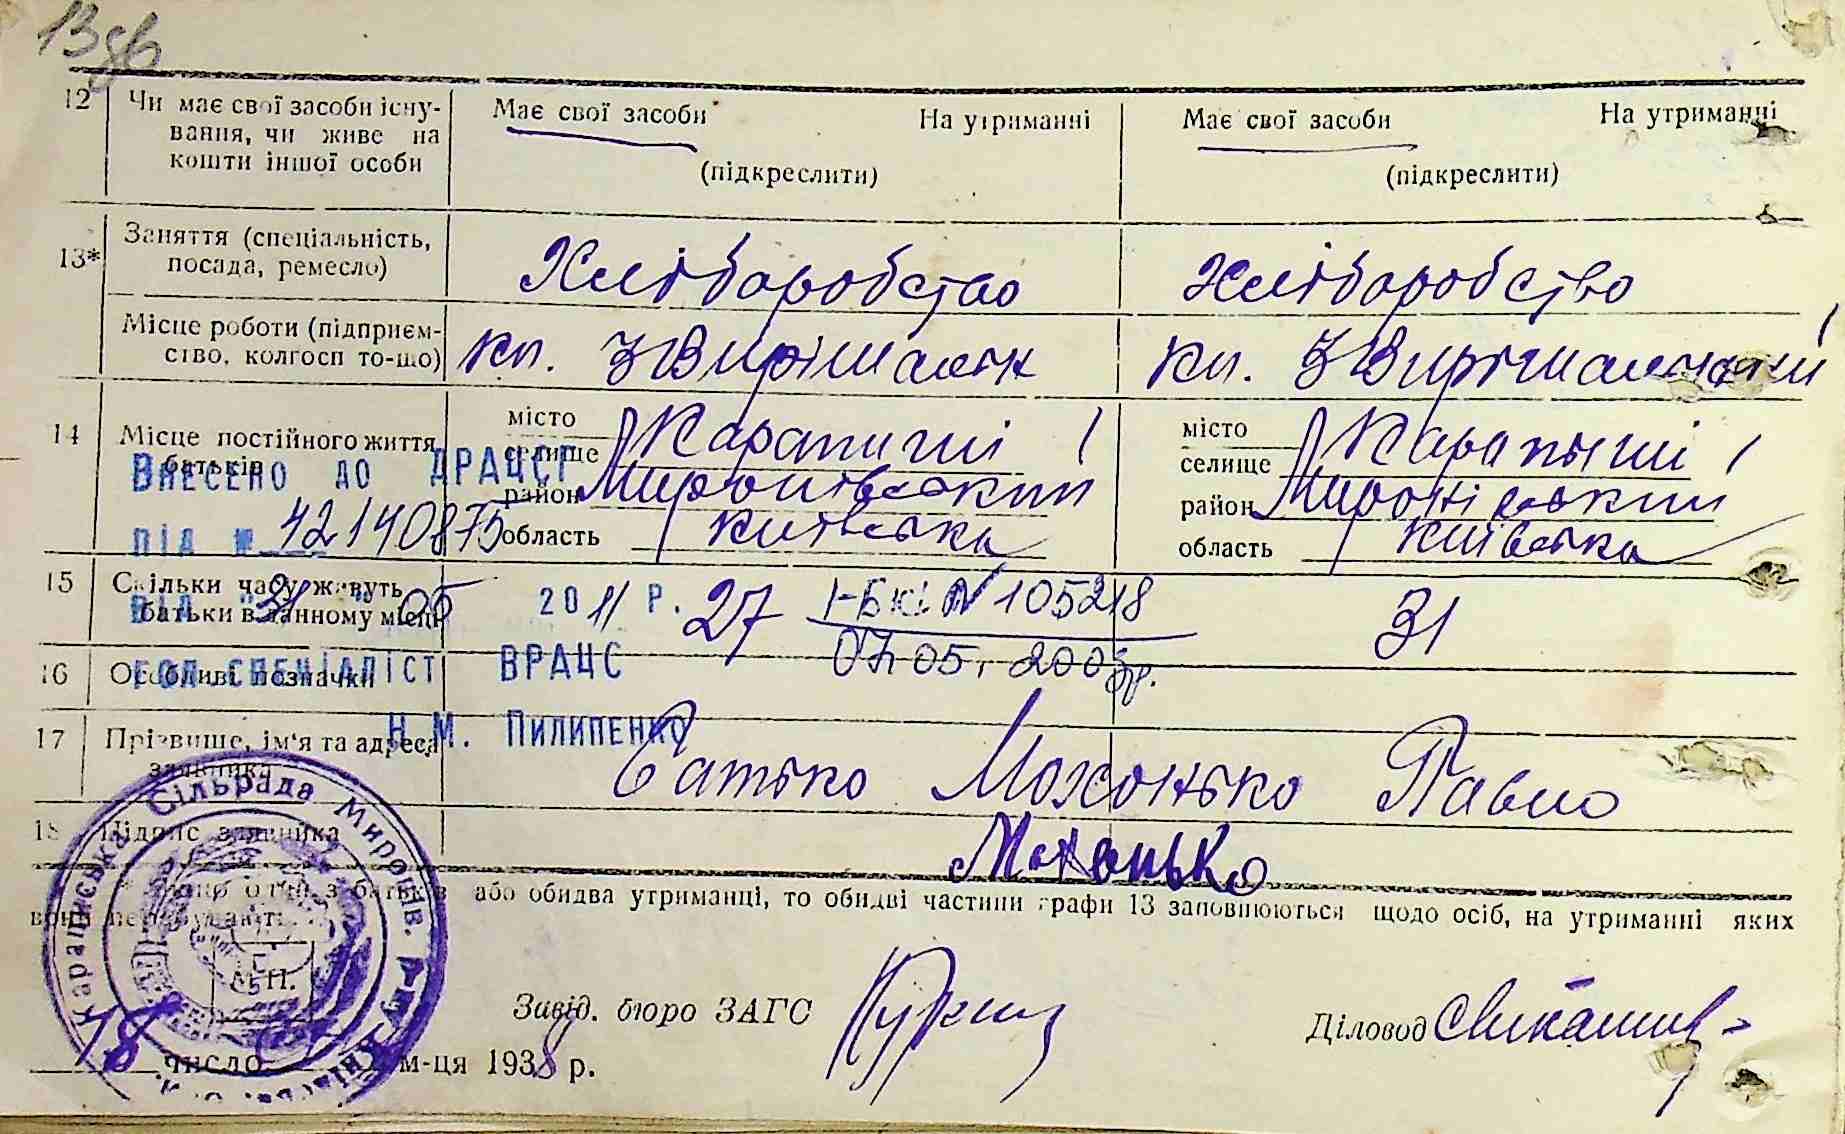 13зв
12 Чи має свої засоби існу- Має свої засоби На утриманні Має свої засоби На утриманні
вання, чи живе на
кошти іншої особи (підкреслити) (підкреслити)
13* Заняття (спеціальність,
посада, ремесло) Хліборобство Хліборобство
Місце роботи (підприєм-
ство, колгосп то-що) кп.
14 Місце постійного життя місто
батьків селище Карапиші місто селище Карапыши
Внесено до ДРАЦСГ
район Миронівський район Миронівський
під № 42140875 область київська область київська
15 Скільки часу живуть
батьки в данному місці 27 31
від "31" 05 2011 р. І-БК № 105218
07.05.2003р.
16 Особливі позначки
Гол.спеціаліст ВРАЦС
Н.М. Пилипенко
17 Прізвище, ім'я та адреса
заявника Батько Мохонько Павло
18 Підпис заявника Мохонько
з батьків або обидва утриманці, то обидві частини графи 13 заповнюються щодо осіб, на утриманні яких
вони перебувають
Караписька Сільрада Миронів.
Завід. бюро ЗАГС
Діловод
18 число м-ця 1938 р.